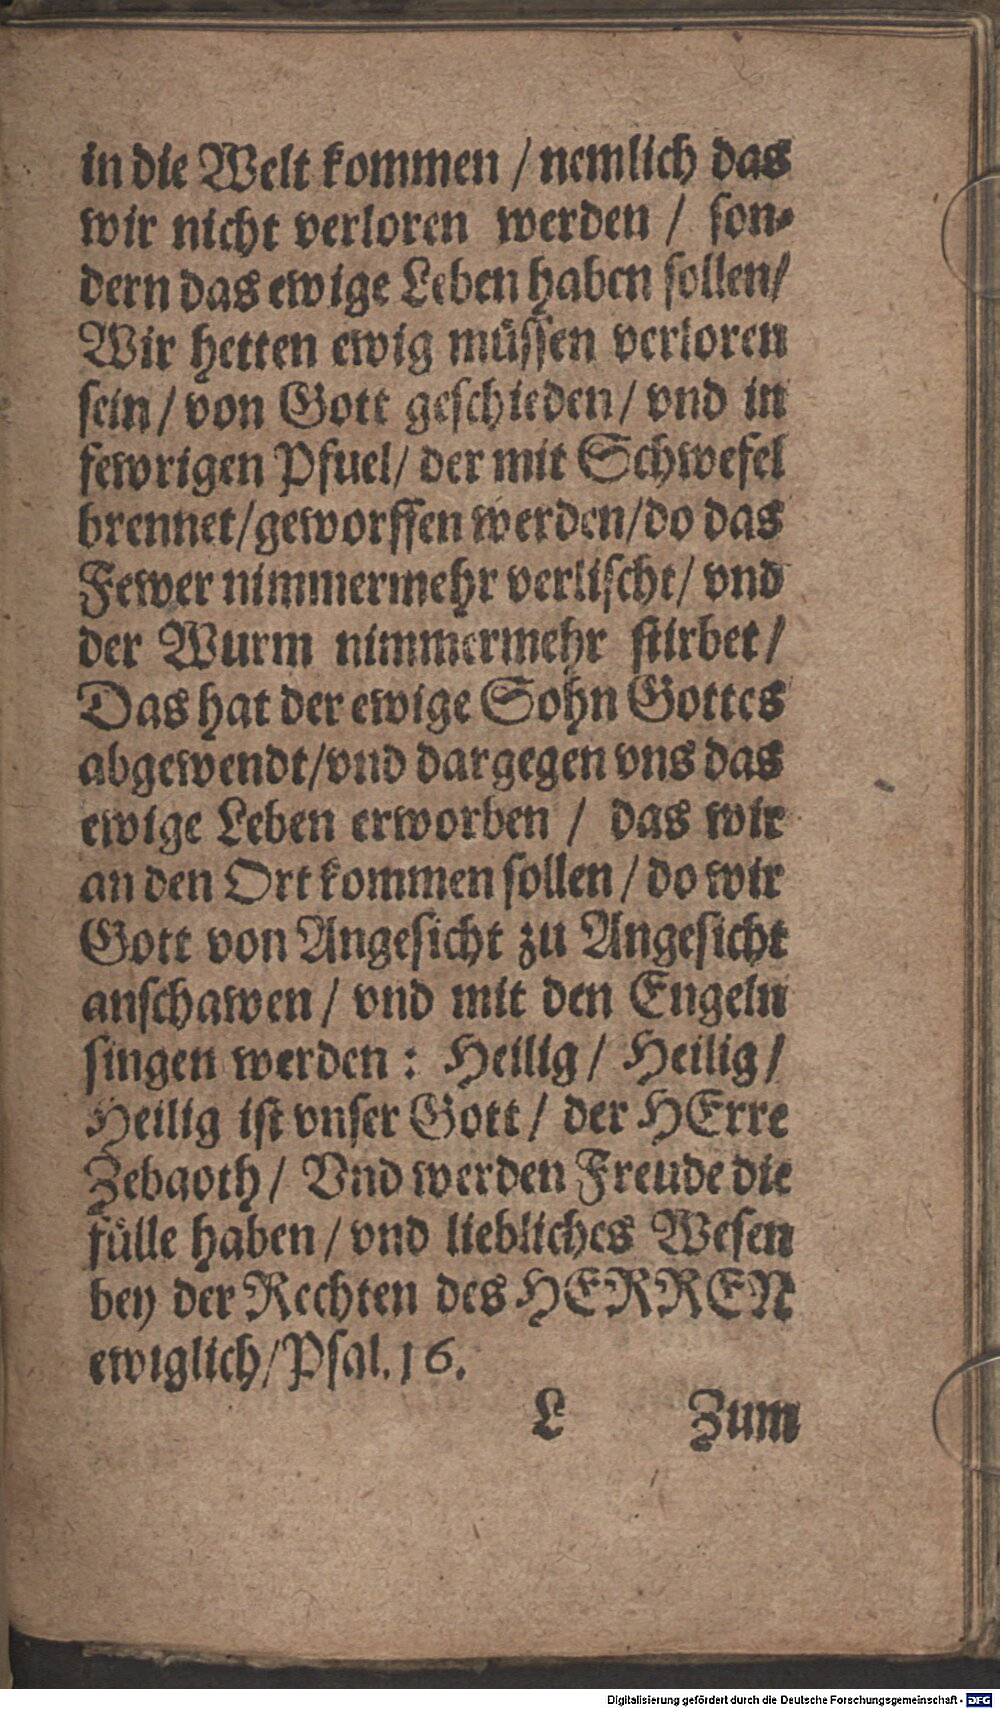 in die Welt kommen / nemlich das
wir nicht verloren werden / son-
dern das ewige Leben haben sollen/
Wir hetten ewig müssen verloren
sein / von Gott geschieden / vnd in
fewrigen Pfuel / der mit Schwefel
brennet / geworffen werden / do das
Fewer nimmermehr verlischt / vnd
der Wurm nimmermehr stirbet /
Das hat der ewige Sohn Gottes
abgewendt / vnd dargegen vns das
ewige Leben erworben / das wir
an den Ort kommen sollen / do wir
Gott von Angesicht zu Angesicht
anschawen / vnd mit den Engeln
singen werden : Heilig / Heilig /
Heilig ist vnser Gott / der HErre
Zebaoth / Vnd werden Freude die
fülle haben / vnd liebliches Wesen
bey der Rechten des HERREN
ewiglich / Psal. 16.
L Zum
Digitalisierung gefördert durch die Deutsche Forschungsgemeinschaft - DFG